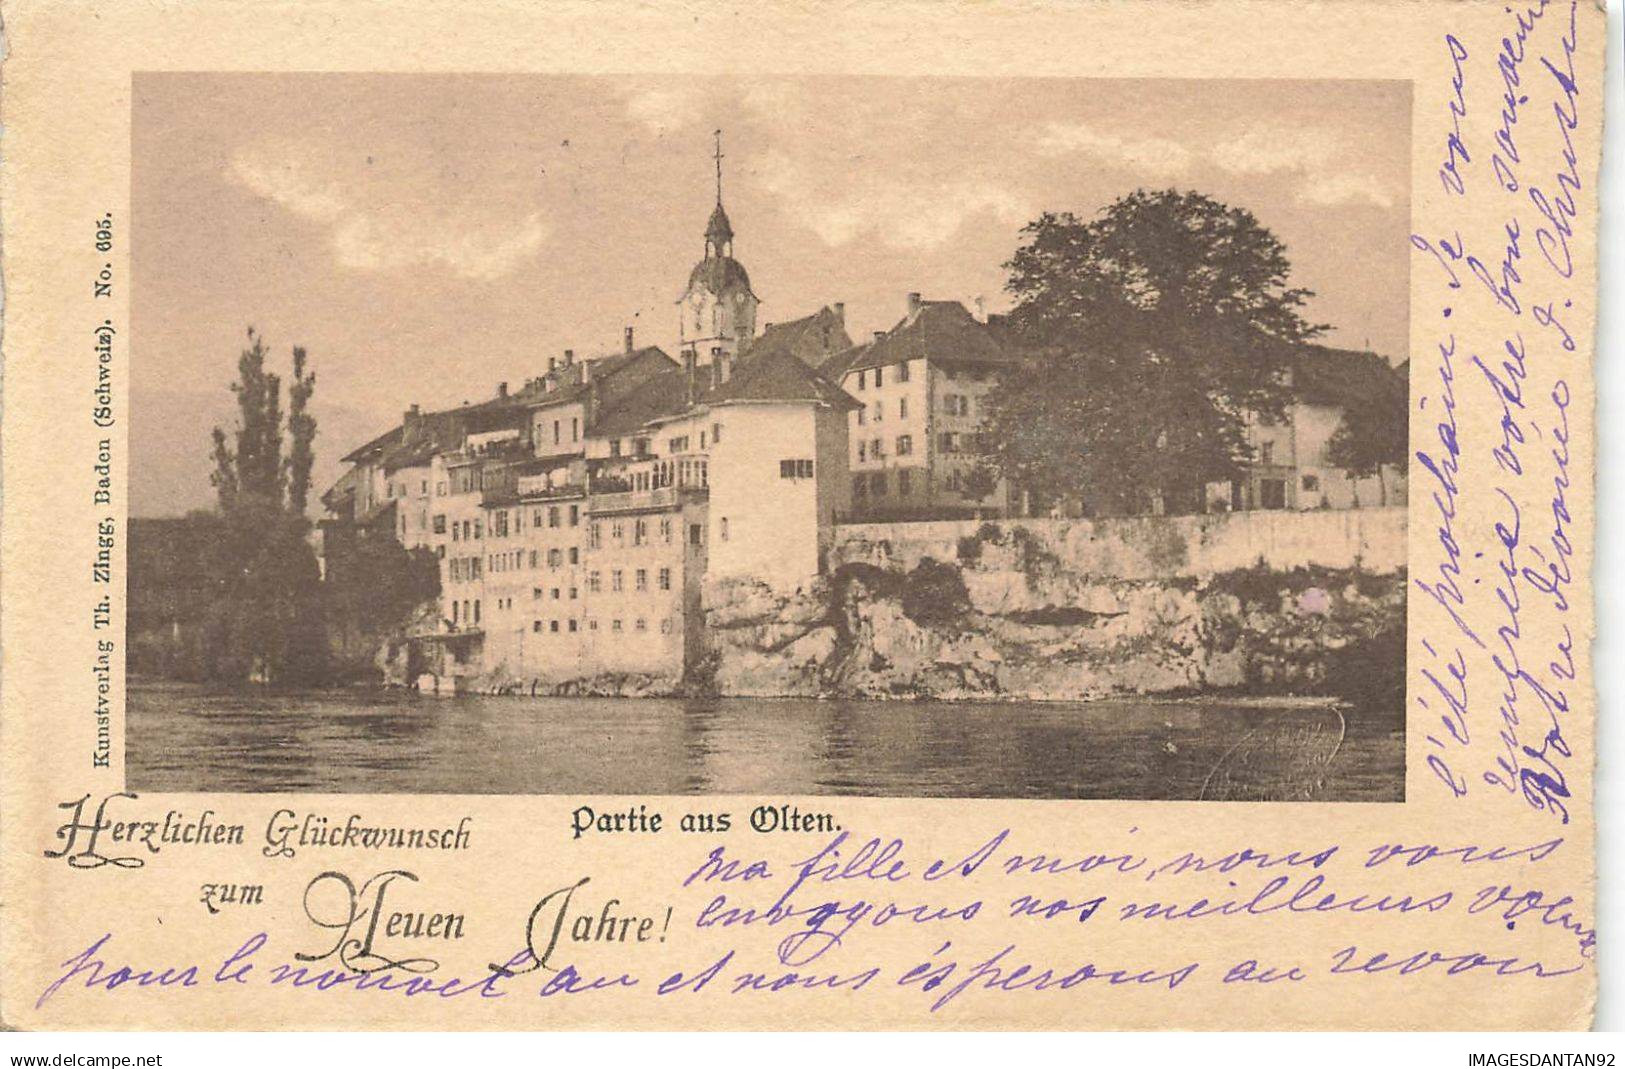 Kunstverlag Th. Zingg, Baden (Schweiz). No. 695.
Herzlichen Glückwunsch
zum
Neuen Jahre!
Partie aus Olten.
Ma fille et moi, nous vous
envoyons nos meilleurs voeux
pour le nouvel an et nous éspérons au revoir
l'été prochain. Je vous
remercie vôtre bon souvenir
Votre dévouée J. Christin
www.delcampe.net
IMAGESDANTAN92